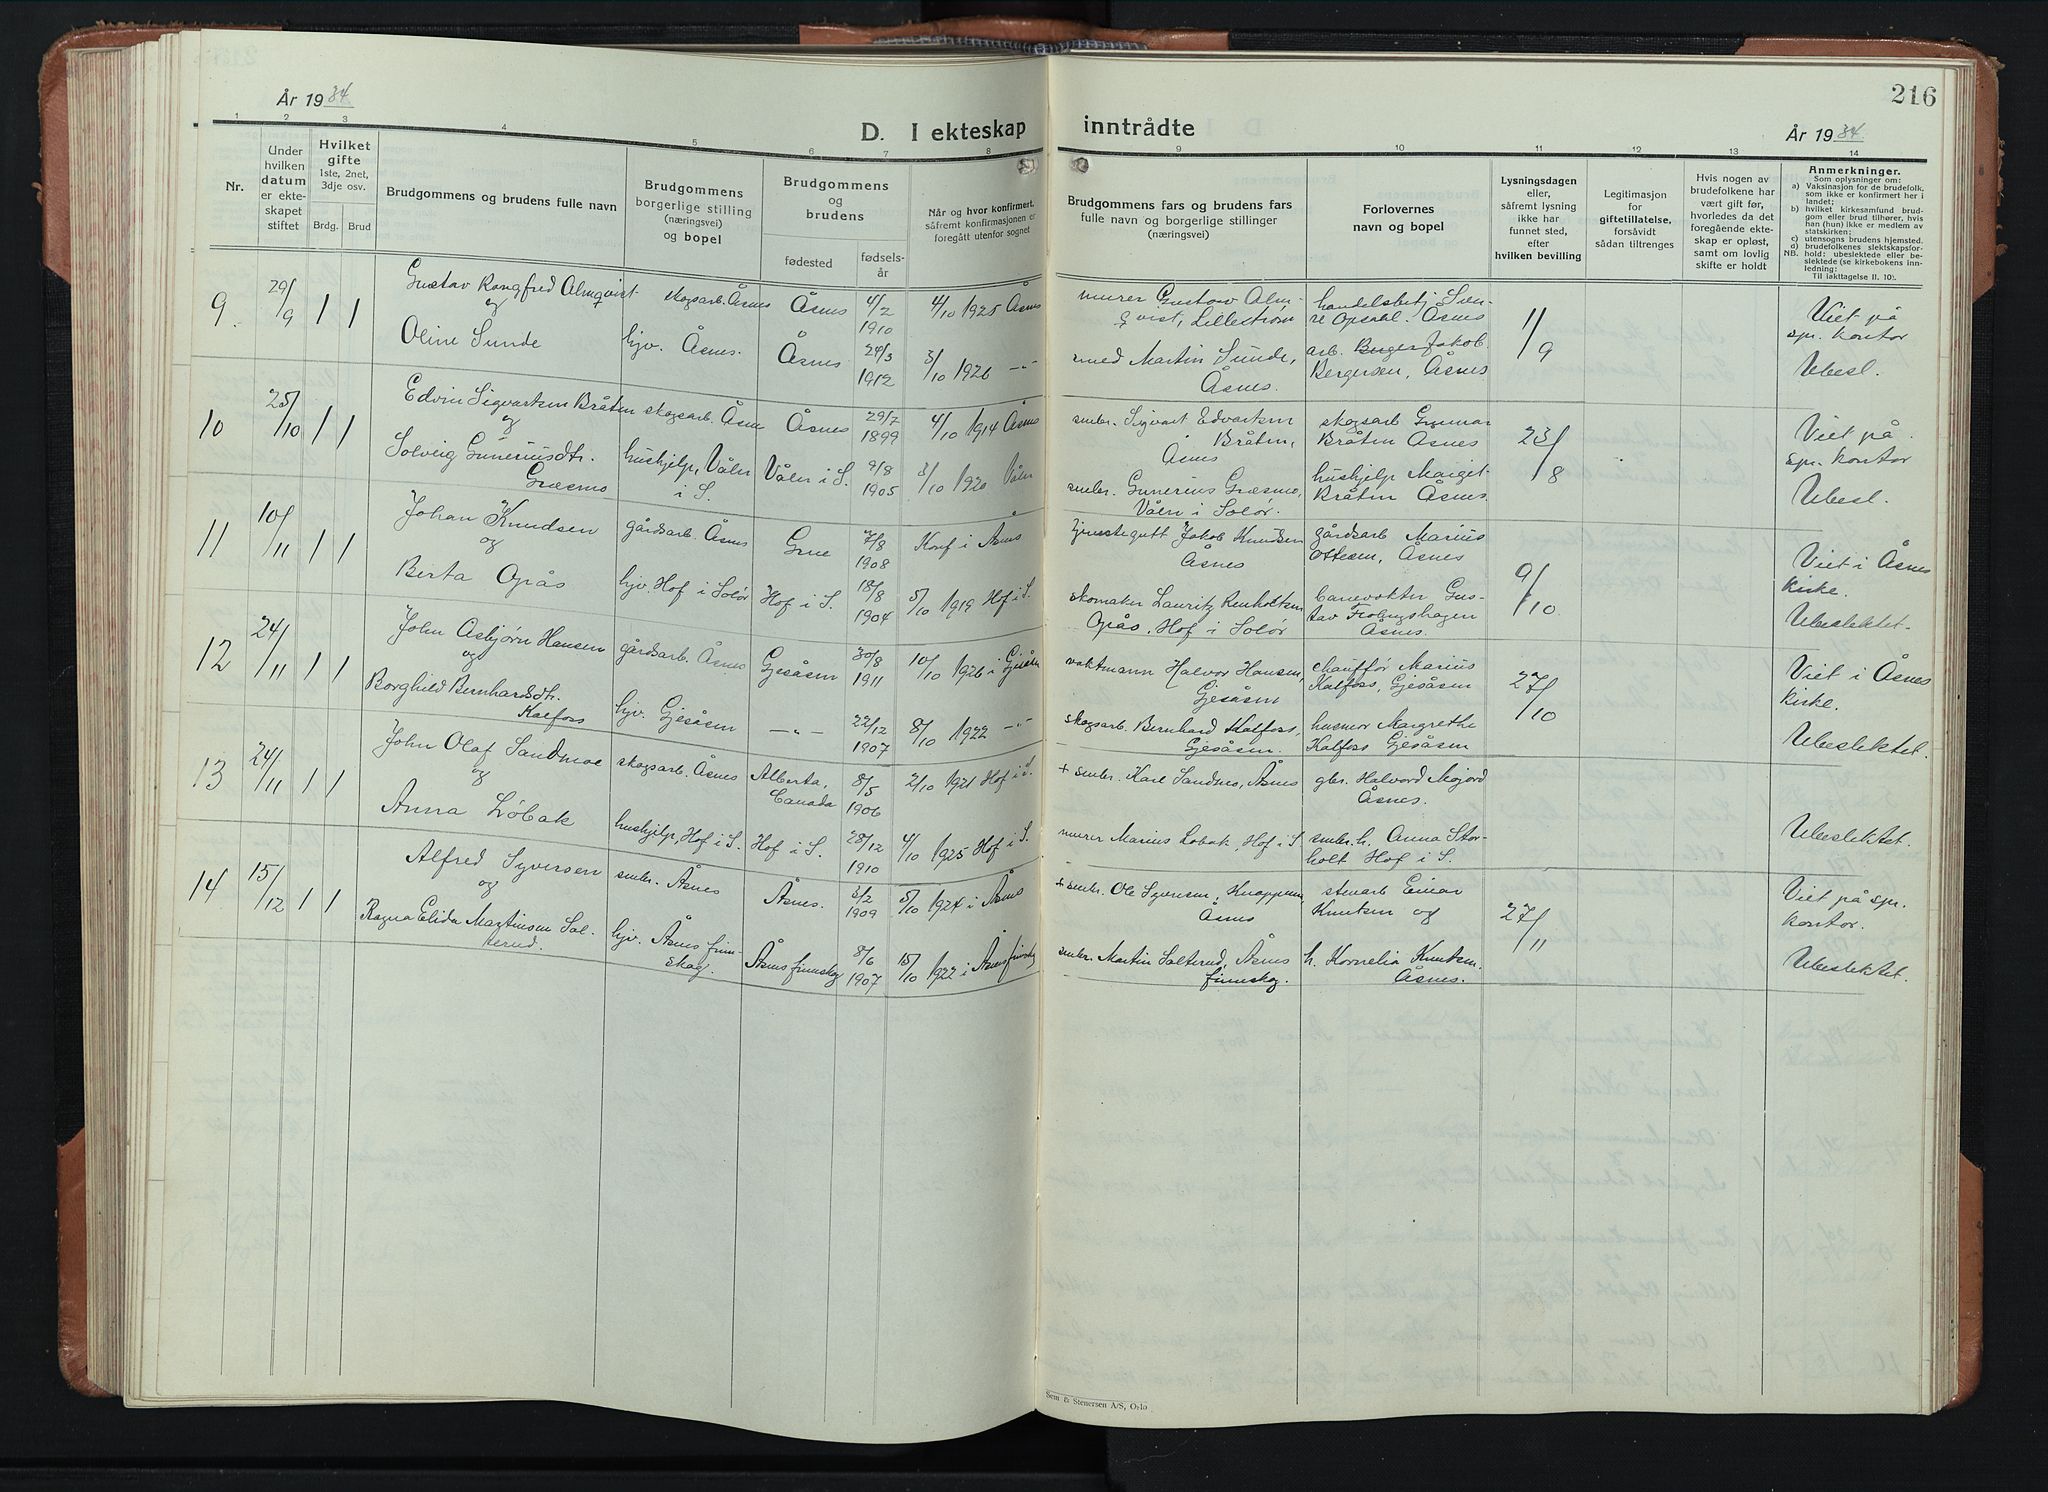 216
År 1934
D. I ekteskap inntrådte
År 1934
1 2 3 4 5 6 7 8 9 10 11 12 13 14
Nr.
Under hvilken datum er ekteskapet stiftet
Hvilket gifte 1ste, 2net, 3dje osv.
Brdg. Brud
Brudgommens og brudens fulle navn
Brudgommens borgerlige stilling (næringsvei) og bopel
Brudgommens og brudens
fødested fødselsår
Når og hvor konfirmert, såfremt konfirmasjonen er foregått utenfor sognet
Brudgommens fars og brudens fars fulle navn og borgerlige stillinger (næringsvei)
Forlovernes navn og bopel
Lysningsdagen eller, såfremt lysning ikke har funnet sted, efter hvilken bevilling
Legitimasjon for giftetillatelse, forsåvidt sådan tiltrenges
Hvis nogen av brudefolkene har vært gift før, hvorledes da det foregående ekteskap er opløst, samt om lovlig skifte er holdt
Anmerkninger.
Som oplysninger om:
a) Vaksinasjon for de brudefolk, som ikke er konfirmert her i landet;
b) hvilket kirkesamfund brudgom eller brud tilhører, hvis han (hun) ikke er medlem av statskirken;
c) utensogns brudens hjemsted.
d) brudefolkenes slektskapsforhold: ubeslektede eller beslektede (se kirkebokens innledning:
NB. Til iakttagelse II. 10).
9 29/9 1 1 Gustav Rangfred Almqvist skogsarb. Åsnes Åsnes 4/2 1910 4/10 1925 Åsnes murer Gustav Almqvist, Lillestrøm handelsbetj. Opsahl. Åsnes 11/9 Viet på spr. kontor
og
Oline Sunde hjv. Åsnes. Åsnes 24/3 1912 3/10 1926 —"— smed Martin Sunde, Åsnes. arb. Jakob Bergersen, Åsnes Ubesl.
10 25/10 1 1 Edvin Sigvartsen Bråten skogsarb. Åsnes Åsnes 29/7 1899 4/10 1914 Åsnes småbr. Sigvart Edvartsen Bråten, Åsnes skogsarb Gunnar Bråten Åsnes 23/8 Viet på spr. kontor
og
Solveig Guneriusdtr. Græsmo hushjelp, Våler i S. Våler i S. 9/8 1905 3/10 1920 Våler småbr. Gunerius Græsmo, Våler i Solør. hushjelp Marget Bråten Åsnes. Ubesl.
11 10/11 1 1 Johan Knudsen gårdsarb. Åsnes Grue 7/8 1908 Konf i Åsnes tjenestegutt Jakob Knudsen Åsnes gårdsarb Marius Ottesen, Åsnes 9/10 Viet i Åsnes kirke.
og
Berta Opås hjv. Hof i Solør Hof i S. 18/8 1904 5/10 1919 Hof i S. skomaker Lauritz Renholtsen Opås, Hof i Solør banevokter Gustav Frolingshagen Åsnes. Ubeslektet.
12 24/11 1 1 John Asbjørn Hansen gårdsarb. Åsnes Gjesåsen 30/8 1911 10/10 1926 i Gjesåsen vaktmann Halvor Hansen, Gjesåsen chauffør Marius Kalfoss, Gjesåsen 27/10 Viet i Åsnes kirke.
og
Borghild Bernhardsdtr. Kalfoss hjv. Gjesåsen —"— 22/12 1907 8/10 1922 —"— skogsarb. Bernhard Kalfoss, Gjesåsen. husmor Margrethe Kalfoss Gjesåsen Ubeslektet.
13 24/11 1 1 John Olaf Sandmoe skogsarb. Åsnes Alberta, Canada 8/5 1906 2/10 1921 Hof i S. + småbr. Karl Sandmo, Åsnes gbr. Halvord Mojord Åsnes.
og
Anna Løbak hushjelp, Hof i S. Hof i S. 28/12 1910 4/10 1925 Hof i S. murer Marius Løbak, Hof i S småbr. h. Anna Storholt Hof i S. Ubeslektet.
14 15/12 1 1 Alfred Syversen småbr. Åsnes Åsnes. 3/2 1909 5/10 1924 i Åsnes + småbr. Ole Syversen, Knappum, Åsnes stenarb Einar Knutsen og 27/11 Viet på spr. kontor.
og
Ragna Elida Martinsen Solterud. hjv. Åsnes finnskog. Åsnes finnskog 8/6 1907 15/10 1922 i Åsnes finnskog småbr. Martin Solterud, Åsnes finnskog. h. Kornelia Knutsen. Åsnes. Ubeslektet.
Sem & Stenersen A/S, Oslo